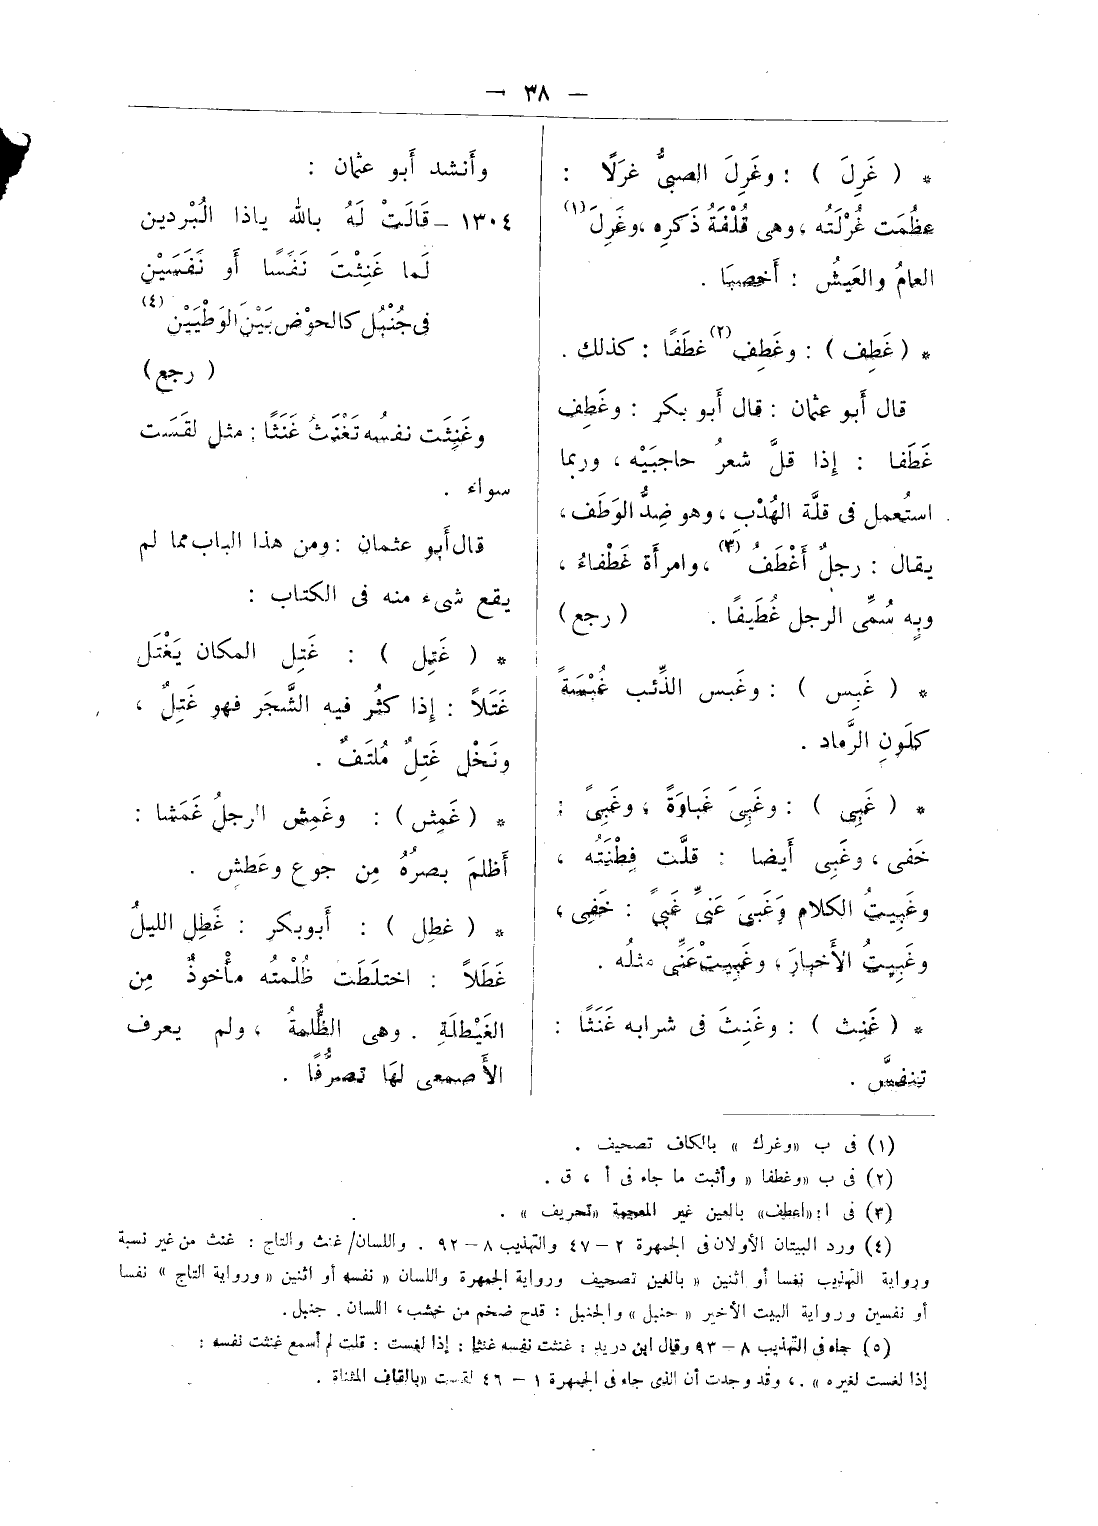 – ٣٨ –
* ( غَرِلَ ) : وغَرِلَ الصبىُّ غرَلًا :
عظُمَت غُرْلَتُه ، وهى قُلْفَةُ ذَكَرِه ، وغَرِلَ (١)
العامُ والعَيشُ : أَخصبَا .
* ( غَطِف ) : وغَطِف (٢) غطَفًا : كذلك .
قال أَبو عثمان : قال أَبو بكر : وغَطِف
غَطَفا : إِذا قلَّ شعرُ حاجبَيْه ، وربما
استُعمل فى قلَّة الهُدْبِ ، وهو ضِدُّ الوَطَف ،
يقال : رجلٌ أَغْطَفُ (٣) ، وامرأَة غَطْفاءُ ،
وبِه سُمِّى الرجل غُطَيفًا . ( رجع )
* ( غَبِس ) : وغَبس الذِّئب غُبْسَةً
كلَونِ الرَّماد .
* ( غَبِى ) : وغَبِىَ غَباوَةً ، وغَبِىً :
خَفى ، وغَبِى أَيضا : قلَّت فِطْنَتُه ،
وغَبِيتُ الكلام وَغَبىَ عَنىِّ غَبىً : خَفِى ،
وغَبِيتُ الأَخبارَ ، وغَبِيتْ عَنِّى مثلُه .
* ( غَنِث ) : وغَنِثَ فى شرابه غَنَثًا :
تنفسَّ .
وأَنشد أَبو عثمان :
١٣٠٤ – قَالَتْ لَهُ بالله ياذا الُبْردين
لَما غَنِثْتَ نَفَسًا أَو نَفَسَيْنِ
فى جُنْبُل كالحوْض بَيْنَ الوَطْبَيْنِ (٤)
( رجع )
وغَنِثَت نفسُه تَغْنَثُ غَنَثًا : مثل لقسَت
سواء .
قال أَبو عثمان : ومن هذا الباب مما لم
يقع شىء منه فى الكتاب :
* ( غَتِل ) : غَتِل المكان يَغْتَل
غَتَلاً : إِذا كثُر فيه الشَّجَر فهو غَتِلٌ ،
ونَخْل غَتِلٌ مُلتَفٌ .
* ( غَمِش ) : وغَمِش الرجلُ غَمَشا :
أَظلمَ بصرُهُ مِن جوع وعَطشٍ .
* ( غطِل ) : أَبوبكر : غَطِل الليلُ
غَطَلاً : اختلَطَت ظُلْمتُه مأْخوذٌ مِن
الغَيْطلَةِ . وهى الظُّلمةُ ، ولم يعرف
الأَصمعى لهَا تصرُّفًا .
(١) فى ب «وغرك » بالكاف تصحيف .
(٢) فى ب «وغطفا » وأثبت ما جاء فى أ ، ق .
(٣) فى ا : «اعطف» بالعين غير المعجمة «تحريف » .
(٤) ورد البيتان الأولان فى الجمهرة ٢ – ٤٧ والتهذيب ٨ – ٩٢ . واللسان/ غنث والتاج : غنث من غير نسبة
ورواية التهذيب نفسا أو اثنين « بالغين تصحيف ورواية الجمهرة واللسان « نفسه أو اثنين «ورواية التاج » نفسا
أو نفسين ورواية البيت الأخير « حنبل » والجنبل : قدح ضخم من خشب ، اللسان . جنبل .
(٥) جاء فى التهذيب ٨ – ٩٣ وقال ابن دريد : غنثت نفسه غنثا : إذا لغست : قلت لم أسمع غنثت نفسه :
إذا لغست لغيره » . ، وقد وجدت أن الذى جاء فى الجمهرة ١ – ٤٦ لقست «بالقاف المثناة .